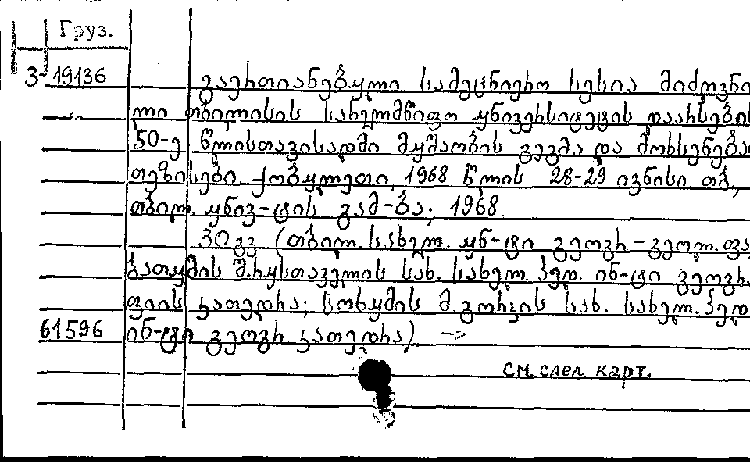 Груз.
3-19136 გაერთიანებული სამეცნიერო სესია მიძღვნი
ლი თბილისის სახელმწიფო უნივერსიტეტის დაარსების
50-ე წლისთავისადმი მუშაობის გეგმა და მოხსენებათ
თეზისები. ქობულეთი, 1968 წლის 28-29 ივნისი თბ.,
თბილ. უნივ-ტის გამ-ბა, 1968.
30 გვ (თბილ. სახელ. უნ-ტი გეოგრ-გეოლ. ფა
ბათუმის შ. რუსთაველის სახ. სახელ. პედ. ინ-ტი გეოგრ.
ფიის კათედრა; სოხუმის მ. გორკის სახ. სახელ. პედ
61596 ინ-ტი გეოგრ კათედრა).
см. след. карт.